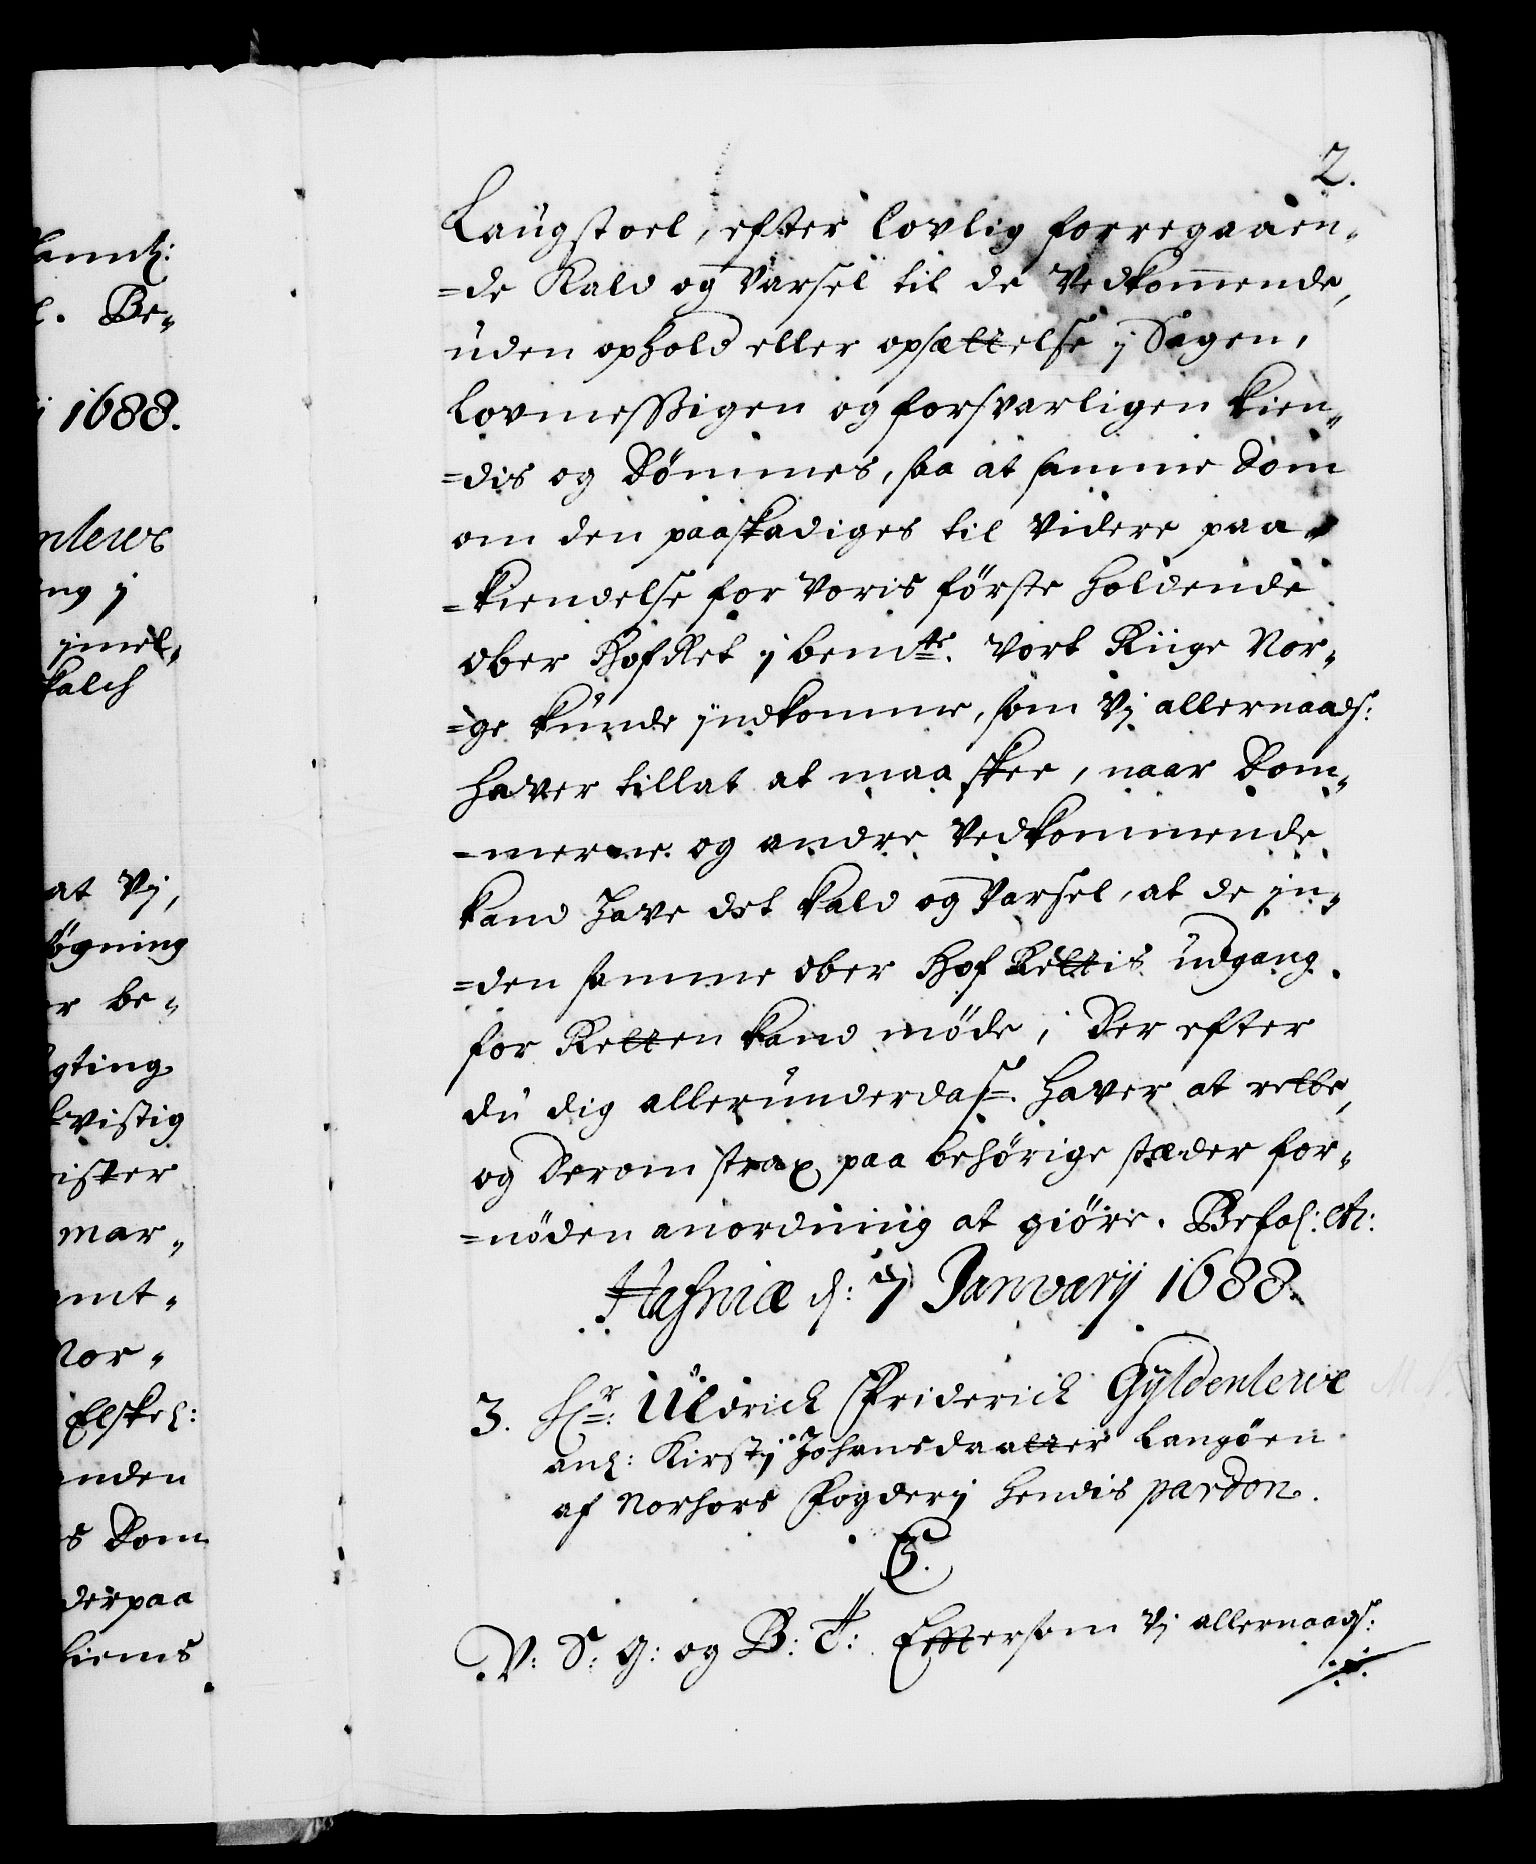 2.
Laugstoel, efter lovlig forregaaen-
=de Kald og Varsel til de Vedkommende,
uden ophold eller opsættelse j Sagen,
lovmessigen og forsvarligen kien-
=dis og Dömmes, saa at samme Dom
om den paaskadiges til videre paa-
=kiendelse for voris förste holdende
Ober HofRet j bemte. vort Riige Nor-
=ge kunde jndkomme, som Vj allernaads:
haver tillat at maa skee, naar Dom-
=merne og andre Vedkommende
kand have det kald og Varsel, at de jn-
=den samme Ober Hof Rettis udgang
for Retten kand möde; Der efter
du dig allerunderdas. haver at rette,
og Derom strax paa behörige stæder for-
=nöden anordning at giöre. Befal: etc:
Hafniæ d: 7 Januarij 1688.
3. Hr: Uldrich Friderich Gyldenlewe
anl: Kirstj Johansdaatter Langöen
af Norhors Fogderj hendis pardon.
C5.
V: S: G: og B: T: Eftersom Vj allernaads:
kamt:
l. Be-
j 1688.
nlewe
ng j
jmel-
kalch
at Vj,
ögning
r be-
gting
lvistig
ister
mar-
mt-
Nor-
Elskel:
nden
s Dom
derpaa
kiens